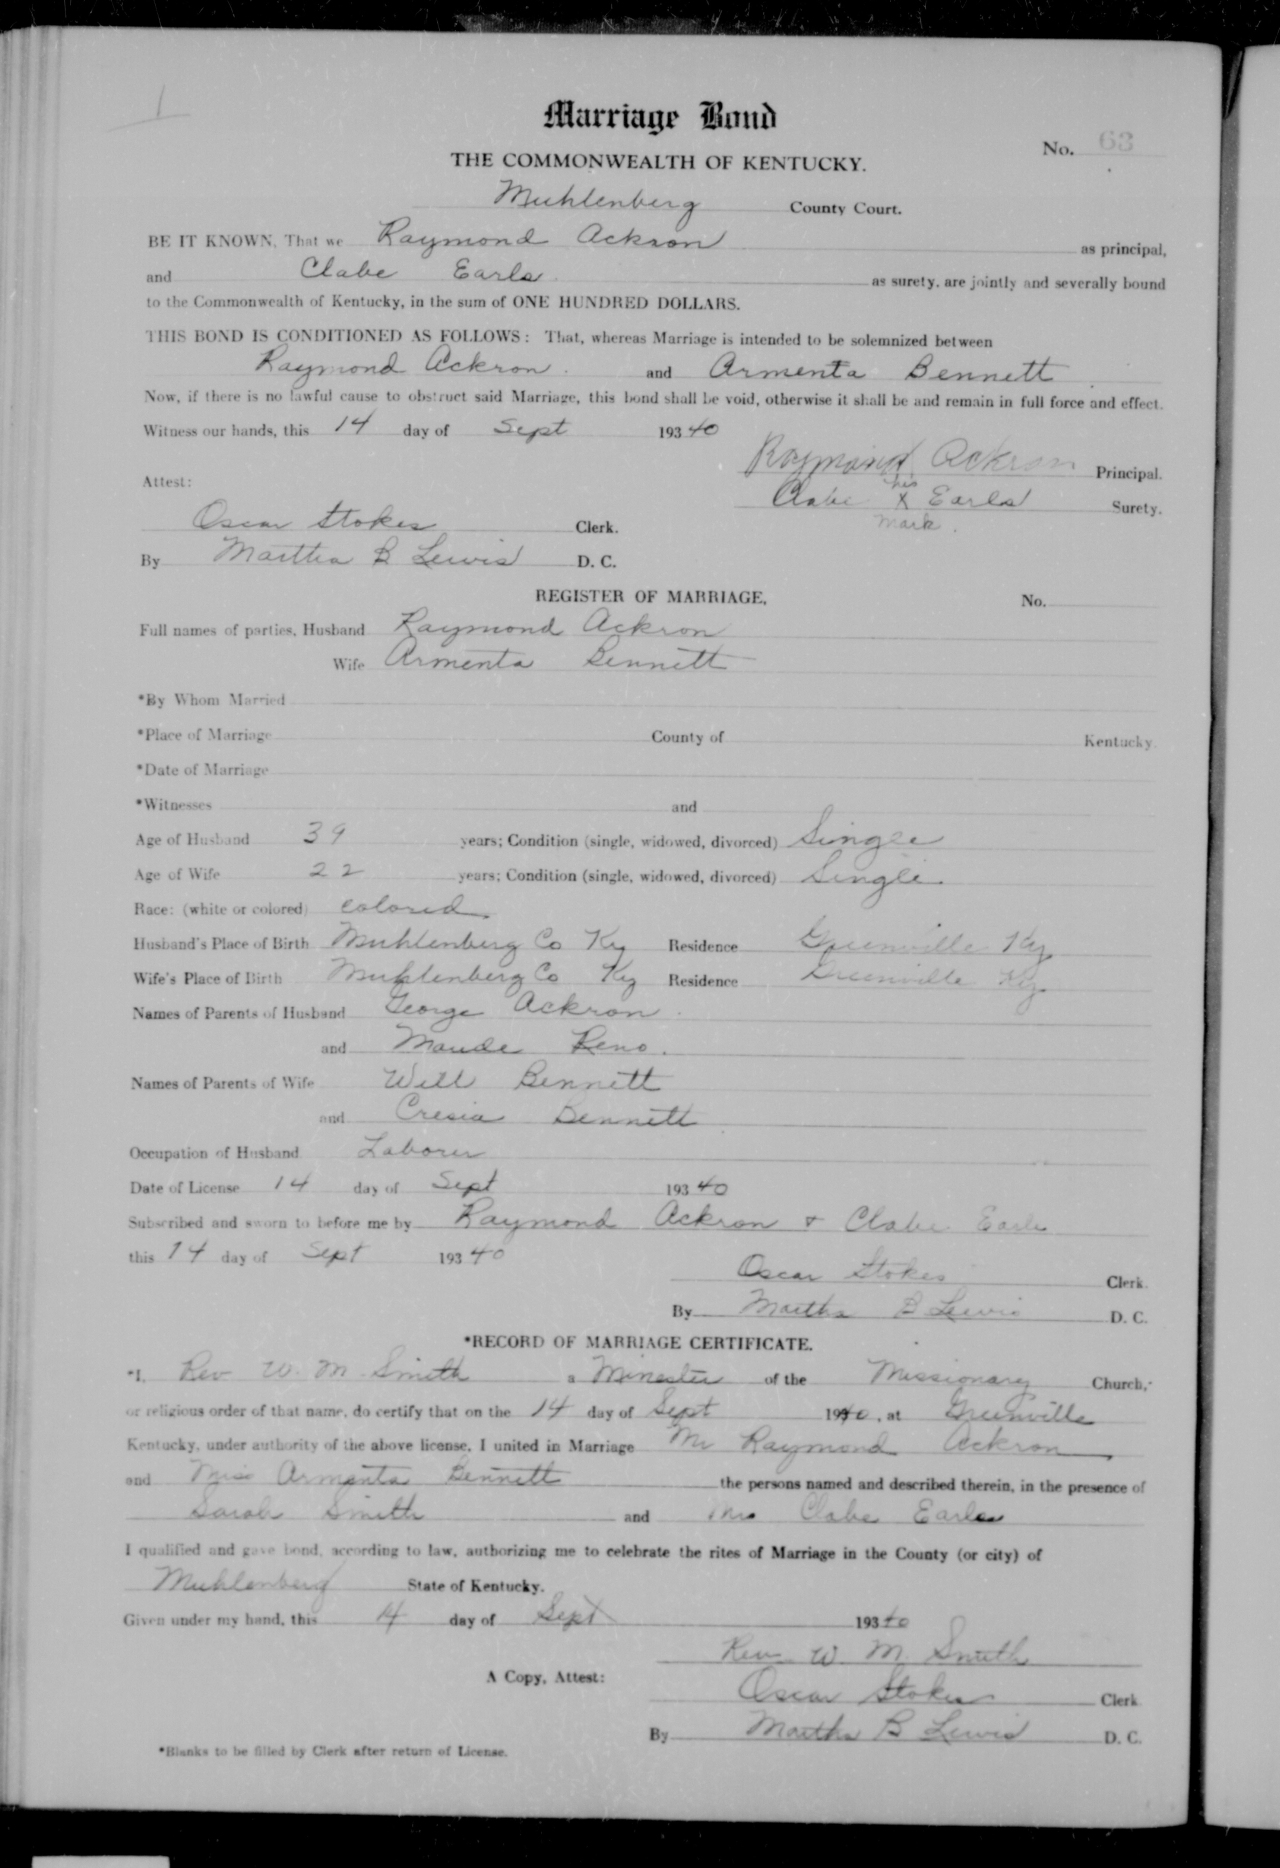 1
Marriage Bond
No. 63
THE COMMONWEALTH OF KENTUCKY.
Muhlenberg County Court.
BE IT KNOWN, That we Raymond Ackron as principal,
and Clabe Earls as surety, are jointly and severally bound
to the Commonwealth of Kentucky, in the sum of ONE HUNDRED DOLLARS.
THIS BOND IS CONDITIONED AS FOLLOWS: That, whereas Marriage is intended to be solemnized between
Raymond Ackron. and Armenta Bennett
Now, if there is no lawful cause to obstruct said Marriage, this bond shall be void, otherwise it shall be and remain in full force and effect.
Witness our hands, this 14 day of Sept 193 40
Raymond Ackron Principal.
Attest:
Clabe his X mark. Earls Surety.
Oscar Stokes Clerk.
By Martha B Lewis D. C.
REGISTER OF MARRIAGE, No.
Full names of parties, Husband Raymond Ackron
Wife Armenta Bennett
*By Whom Married
*Place of Marriage County of Kentucky
*Date of Marriage
*Witnesses and
Age of Husband 39 years; Condition (single, widowed, divorced) Single
Age of Wife 22 years; Condition (single, widowed, divorced) Single
Race: (white or colored) colored
Husband's Place of Birth Muhlenberg Co Ky Residence Greenville Ky
Wife's Place of Birth Muhlenberg Co Ky Residence Greenville Ky
Names of Parents of Husband George Ackron
and Maude Reno.
Names of Parents of Wife Will Bennett
and Cresia Bennett
Occupation of Husband Laborer
Date of License 14 day of Sept 193 40
Subscribed and sworn to before me by Raymond Ackron & Clabe Earls
this 14 day of Sept 193 40
Oscar Stokes Clerk.
By Martha B Lewis D. C.
*RECORD OF MARRIAGE CERTIFICATE.
*I, Rev W. M. Smith a Minester of the Missionary Church,
or religious order of that name, do certify that on the 14 day of Sept 1940, at Greenville
Kentucky, under authority of the above license, I united in Marriage Mr Raymond Ackron
and Miss Armenta Bennett the persons named and described therein, in the presence of
Sarah Smith and Mrs Clabe Earls
I qualified and gave bond, according to law, authorizing me to celebrate the rites of Marriage in the County (or city) of
Muhlenberg State of Kentucky.
Given under my hand, this 14 day of Sept 193 40
Rev W. M. Smith
A Copy, Attest:
Oscar Stokes Clerk
By Martha B Lewis D. C.
*Blanks to be filled by Clerk after return of License.